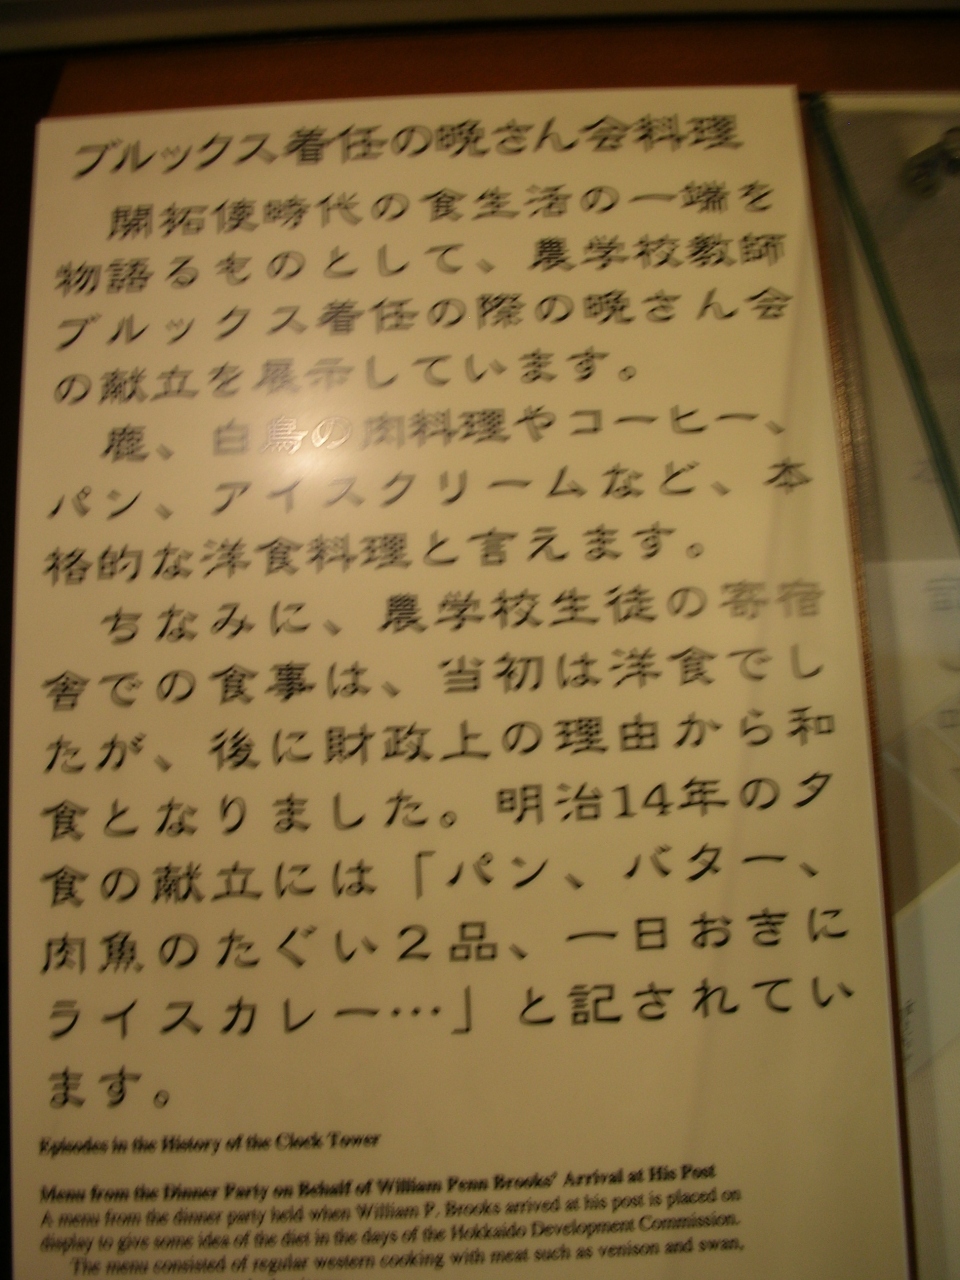 ブルックス着任の晩さん会料理
開拓使時代の食生活の一端を
物語るものとして、農学校教師
ブルックス着任の際の晩さん会
の献立を展示しています。
鹿、白鳥の肉料理やコーヒー、
パン、アイスクリームなど、本
格的な洋食料理と言えます。
ちなみに、農学校生徒の寄宿
舎での食事は、当初は洋食でし
たが、後に財政上の理由から和
食となりました。明治14年の夕
食の献立には「パン、バター、
肉魚のたぐい2品、一日おきに
ライスカレー…」と記されてい
ます。
Episodes in the History of the Clock Tower
Menu from the Dinner Party on Behalf of William Penn Brooks' Arrival at His Post
A menu from the dinner party held when William P. Brooks arrived at his post is placed on
display to give some idea of the diet in the days of the Hokkaido Development Commission.
The menu consisted of regular western cooking with meat such as venison and swan,